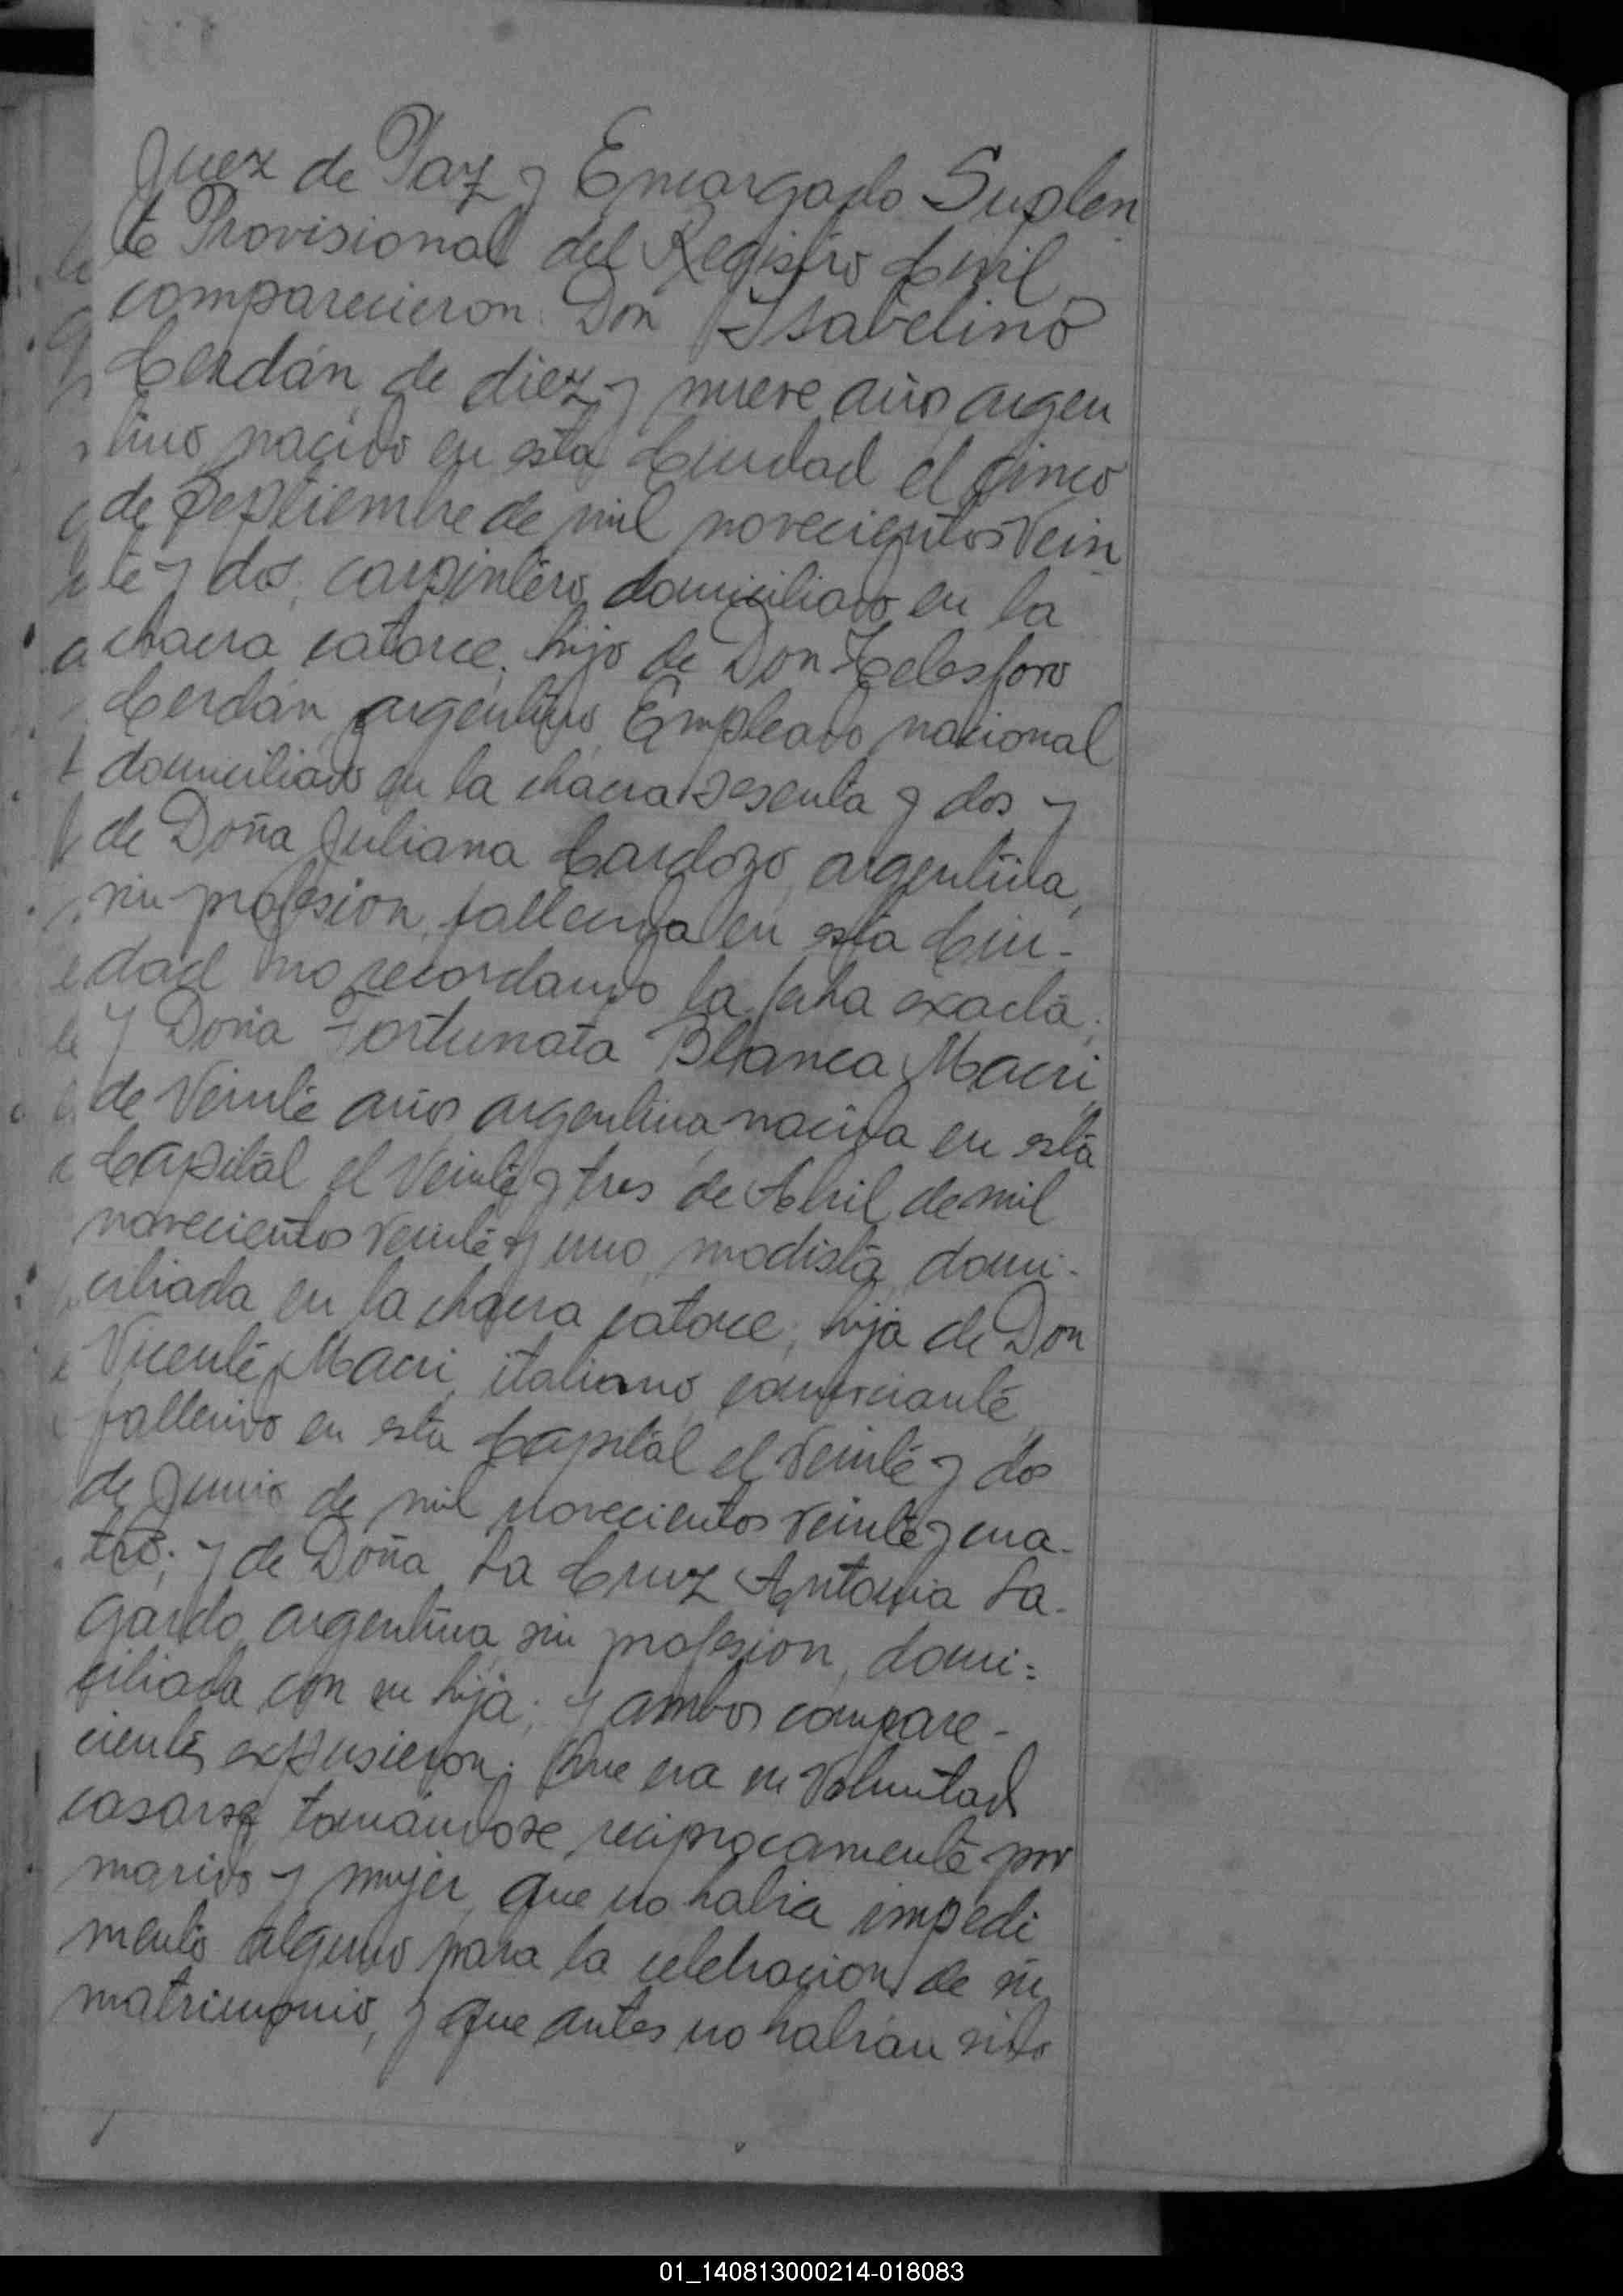 Juez de Paz y Encargado Suplen
te Provisional del Registro Civil
comparecieron: Don Isabelino
Cerdán, de diez y nueve años, argen
tino, nacido en esta Ciudad el cinco
de Septiembre de mil novecientos vein
te y dos, carpintero, domiciliado en la
chacra catorce, hijo de Don Telesforo
Cerdán, argentino, Empleado nacional
domiciliado en la chacra sesenta y dos y
de Doña Juliana Cardozo, argentina,
sin profesion, fallecida en esta Ciu-
dad no recordando la fecha exacta;
y Doña Fortunata Blanca Macri,
de veinte años, argentina, nacida en esta
Capital el veinte y tres de Abril de mil
novecientos veinte y uno, modista, domi-
ciliada en la chacra catorce, hija de Don
Vicente Macri, italiano, comerciante,
fallecido en esta Capital el veinte y dos
de Junio de mil novecientos veinte y cua-
tro; y de Doña La Cruz Antonia La-
gardo, argentina, sin profesion, domi=
ciliada con su hija; y ambos compare-
cientes expusieron: Que era su voluntad
casarse tomándose reciprocamente por
marido y mujer, que no habia impedi
mento alguno para la celebracion de su
matrimonio, y que antes no habian sido
01_140813000214-018083